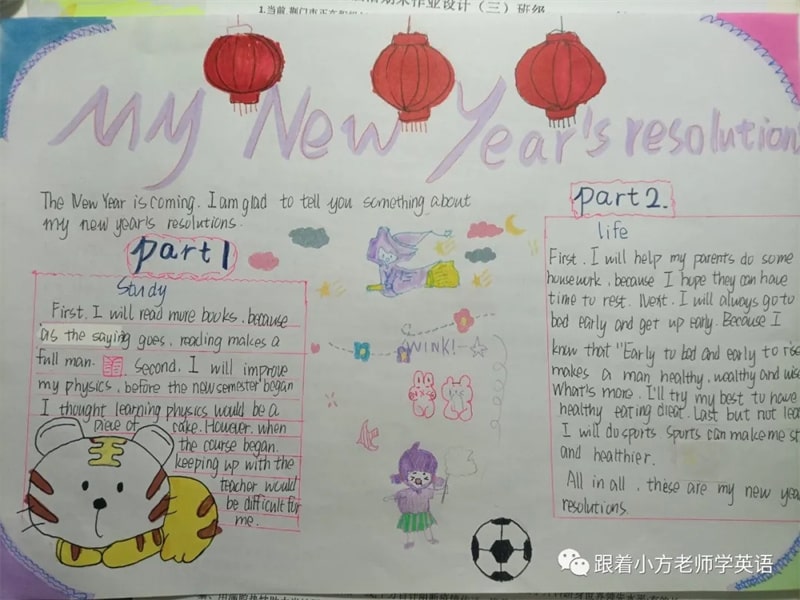 1.当前
作业设计（三）班级
My New Year's resolution
The New Year is coming. I am glad to tell you something about
my new year's resolutions.
part1
Study
First. I will read more books, because
as the saying goes, reading makes a
full man. Second, I will improve
my physics, before the new semester began
I thought learning physics would be a
piece of cake. However, when
the course began.
keeping up with the
teacher would
be difficult for
me.
WINK!
part2.
life
First. I will help my parents do some
housework, because I hope they can have
time to rest. Next. I will always go to
bed early and get up early. Because I
know that "Early to bed and early to rise
makes a man healthy, wealthy and wise
What's more. I'll try my best to have
healthy eating diet. Last but not lea
I will do sports sports can make me st
and healthier.
All in all, these are my new yea
resolutions.
跟着小方老师学英语